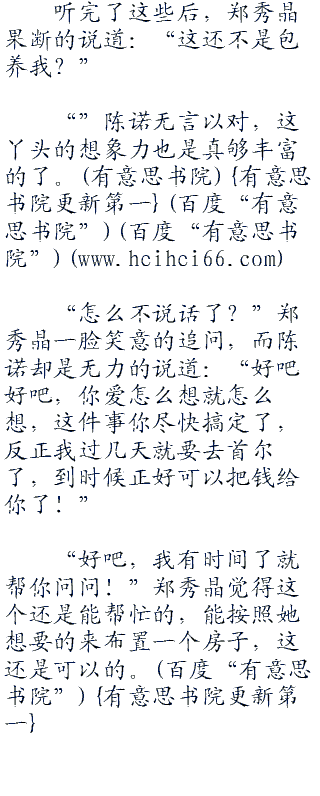 听完了这些后，郑秀晶
果断的说道：“这还不是包
养我？”
“”陈诺无言以对，这
丫头的想象力也是真够丰富
的了。(有意思书院) {有意思
书院更新第一} (百度“有意
思书院”) (百度“有意思书
院”) (www.hcihci66.com)
“怎么不说话了？”郑
秀晶一脸笑意的追问，而陈
诺却是无力的说道：“好吧
好吧，你爱怎么想就怎么
想，这件事你尽快搞定了，
反正我过几天就要去首尔
了，到时候正好可以把钱给
你了！”
“好吧，我有时间了就
帮你问问！”郑秀晶觉得这
个还是能帮忙的，能按照她
想要的来布置一个房子，这
还是可以的。(百度“有意思
书院”) {有意思书院更新第
一}